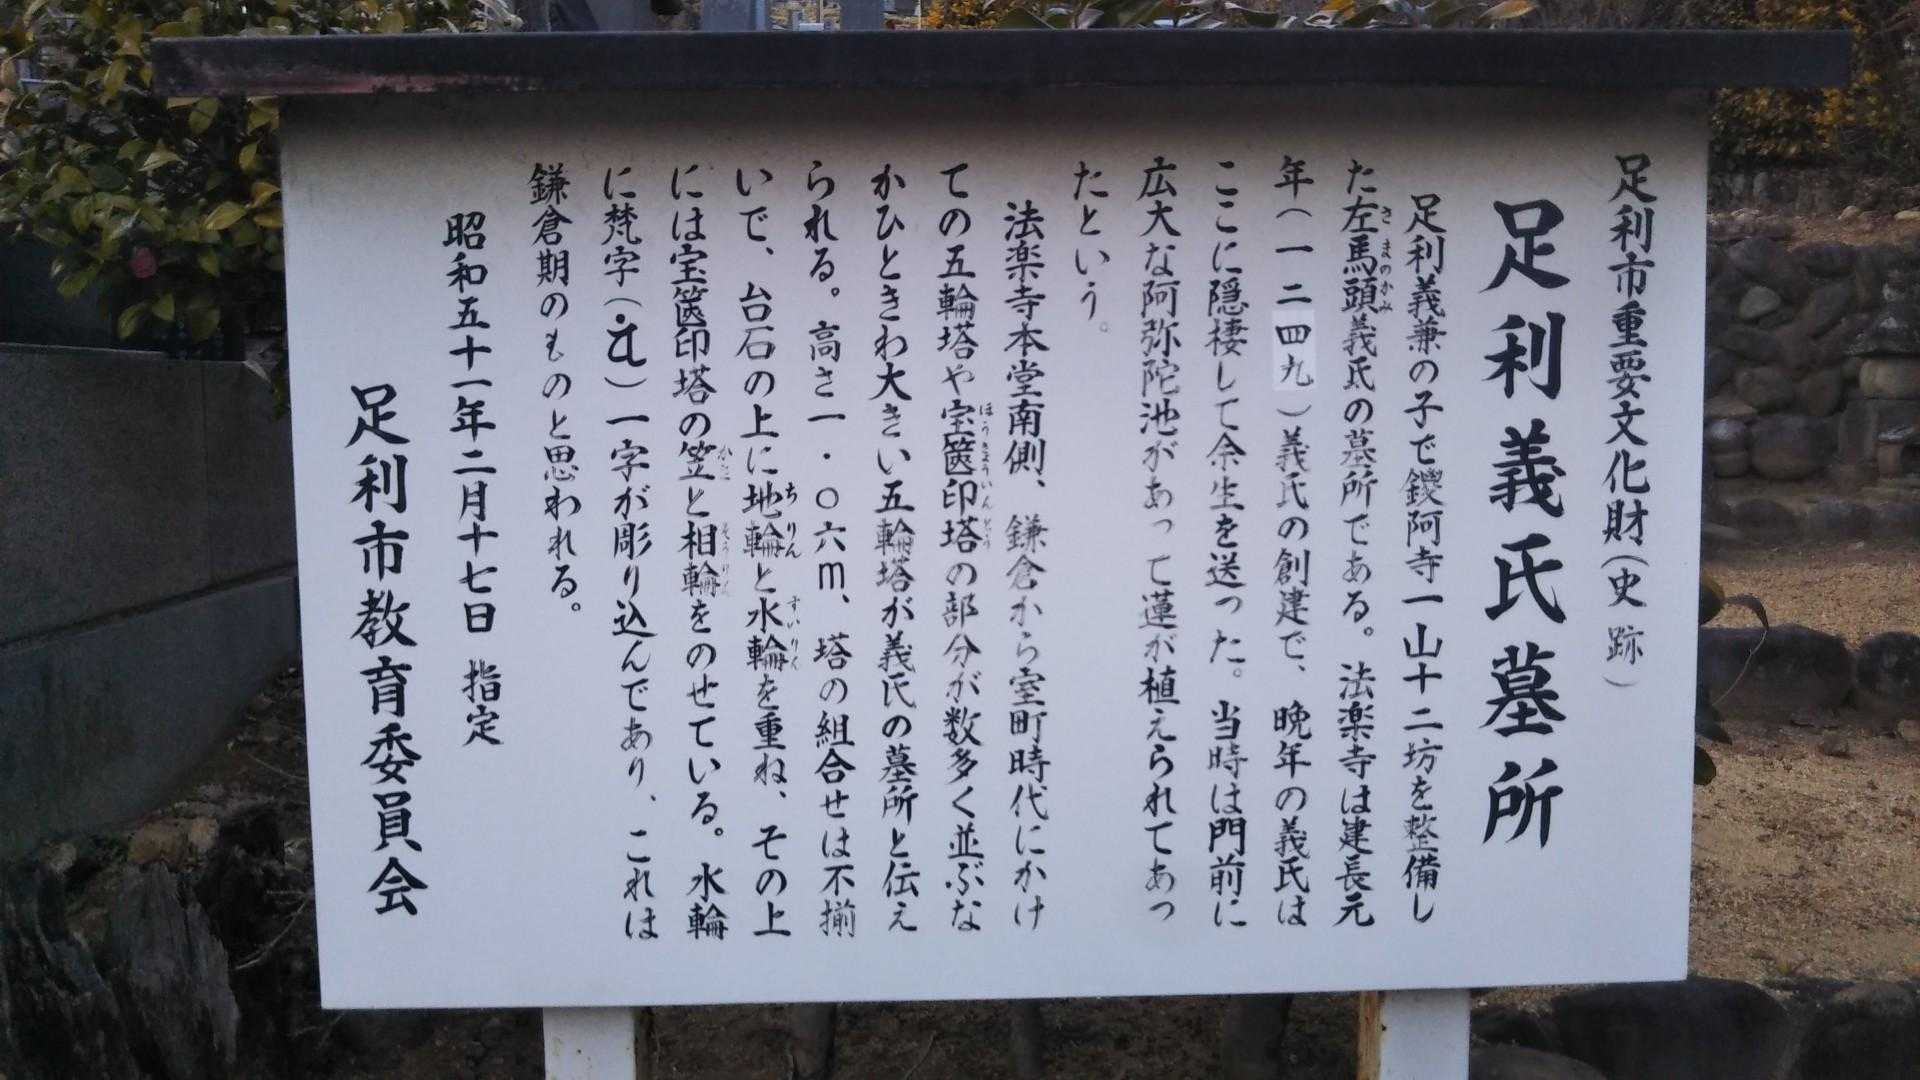 足利市重要文化財(史跡)
足利義氏墓所
足利義兼の子で鑁阿寺一山十二坊を整備し
た左馬頭義氏の墓所である。法楽寺は建長元
年(一二四九)義氏の創建で、晩年の義氏は
ここに隠棲して余生を送った。当時は門前に
広大な阿弥陀池があって蓮が植えられてあっ
たという。
法楽寺本堂南側、鎌倉から室町時代にかけ
ての五輪塔や宝篋印塔の部分が数多く並ぶな
かひときわ大きい五輪塔が義氏の墓所と伝え
られる。高さ一・〇六m、塔の組合せは不揃
いで、台石の上に地輪と水輪を重ね、その上
には宝篋印塔の笠と相輪をのせている。水輪
に梵字()一字が彫り込んであり、これは
鎌倉期のものと思われる。
昭和五十一年二月十七日 指定
足利市教育委員会